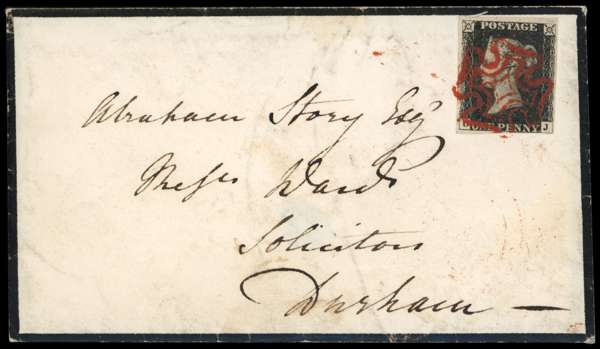 POSTAGE
ONE PENNY
J
Abraham Story Esqr
Messrs Wards
Solicitors
Durham